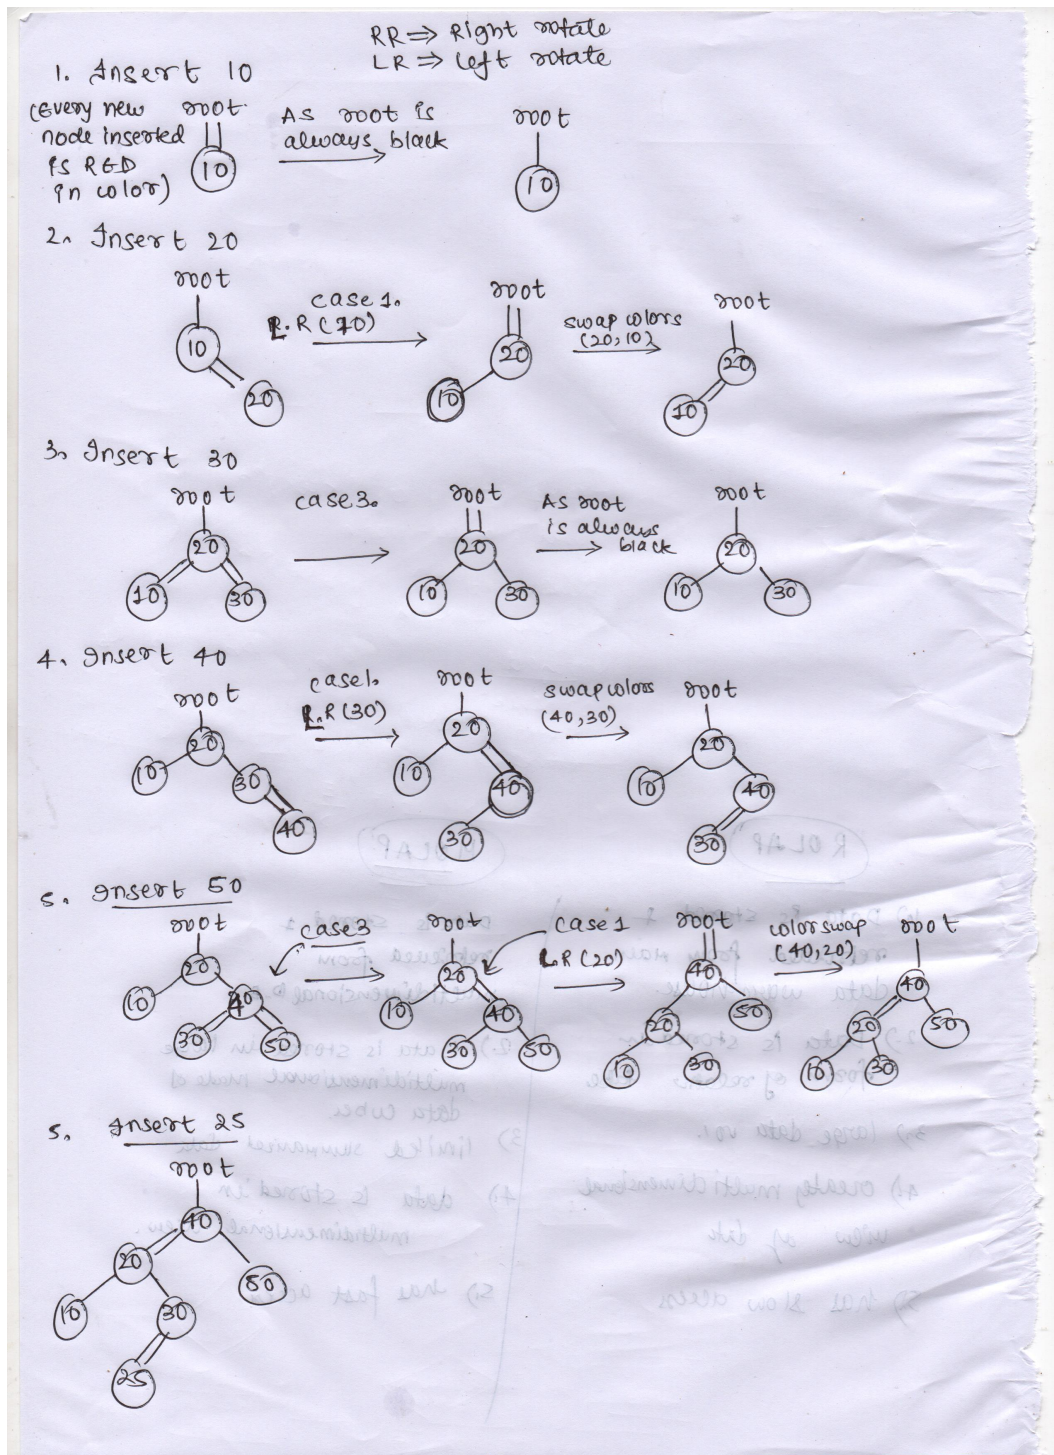 RR⇒ Right rotate
LR ⇒ Left rotate
1. Insert 10
(Every new
node inserted
is RED
in color)
root
10
As root is
always black
root
10
2. Insert 20
root
10
20
case 1.
L.R (10)
root
20
10
swap colors
(20,10)
root
20
10
3. Insert 30
root
20
10
30
case 3.
root
20
10
30
As root
is always
black
root
20
10
30
4. Insert 40
root
20
10
30
40
case 1.
L.R (30)
root
20
10
40
30
swap colors
(40,30)
root
20
10
40
30
5. Insert 50
root
20
10
40
30
50
case 3
root
20
10
40
30
50
case 1
L.R (20)
root
40
20
50
10
30
color swap
(40,20)
root
40
20
50
10
30
5. Insert 25
root
40
20
50
10
30
25
ROLAP